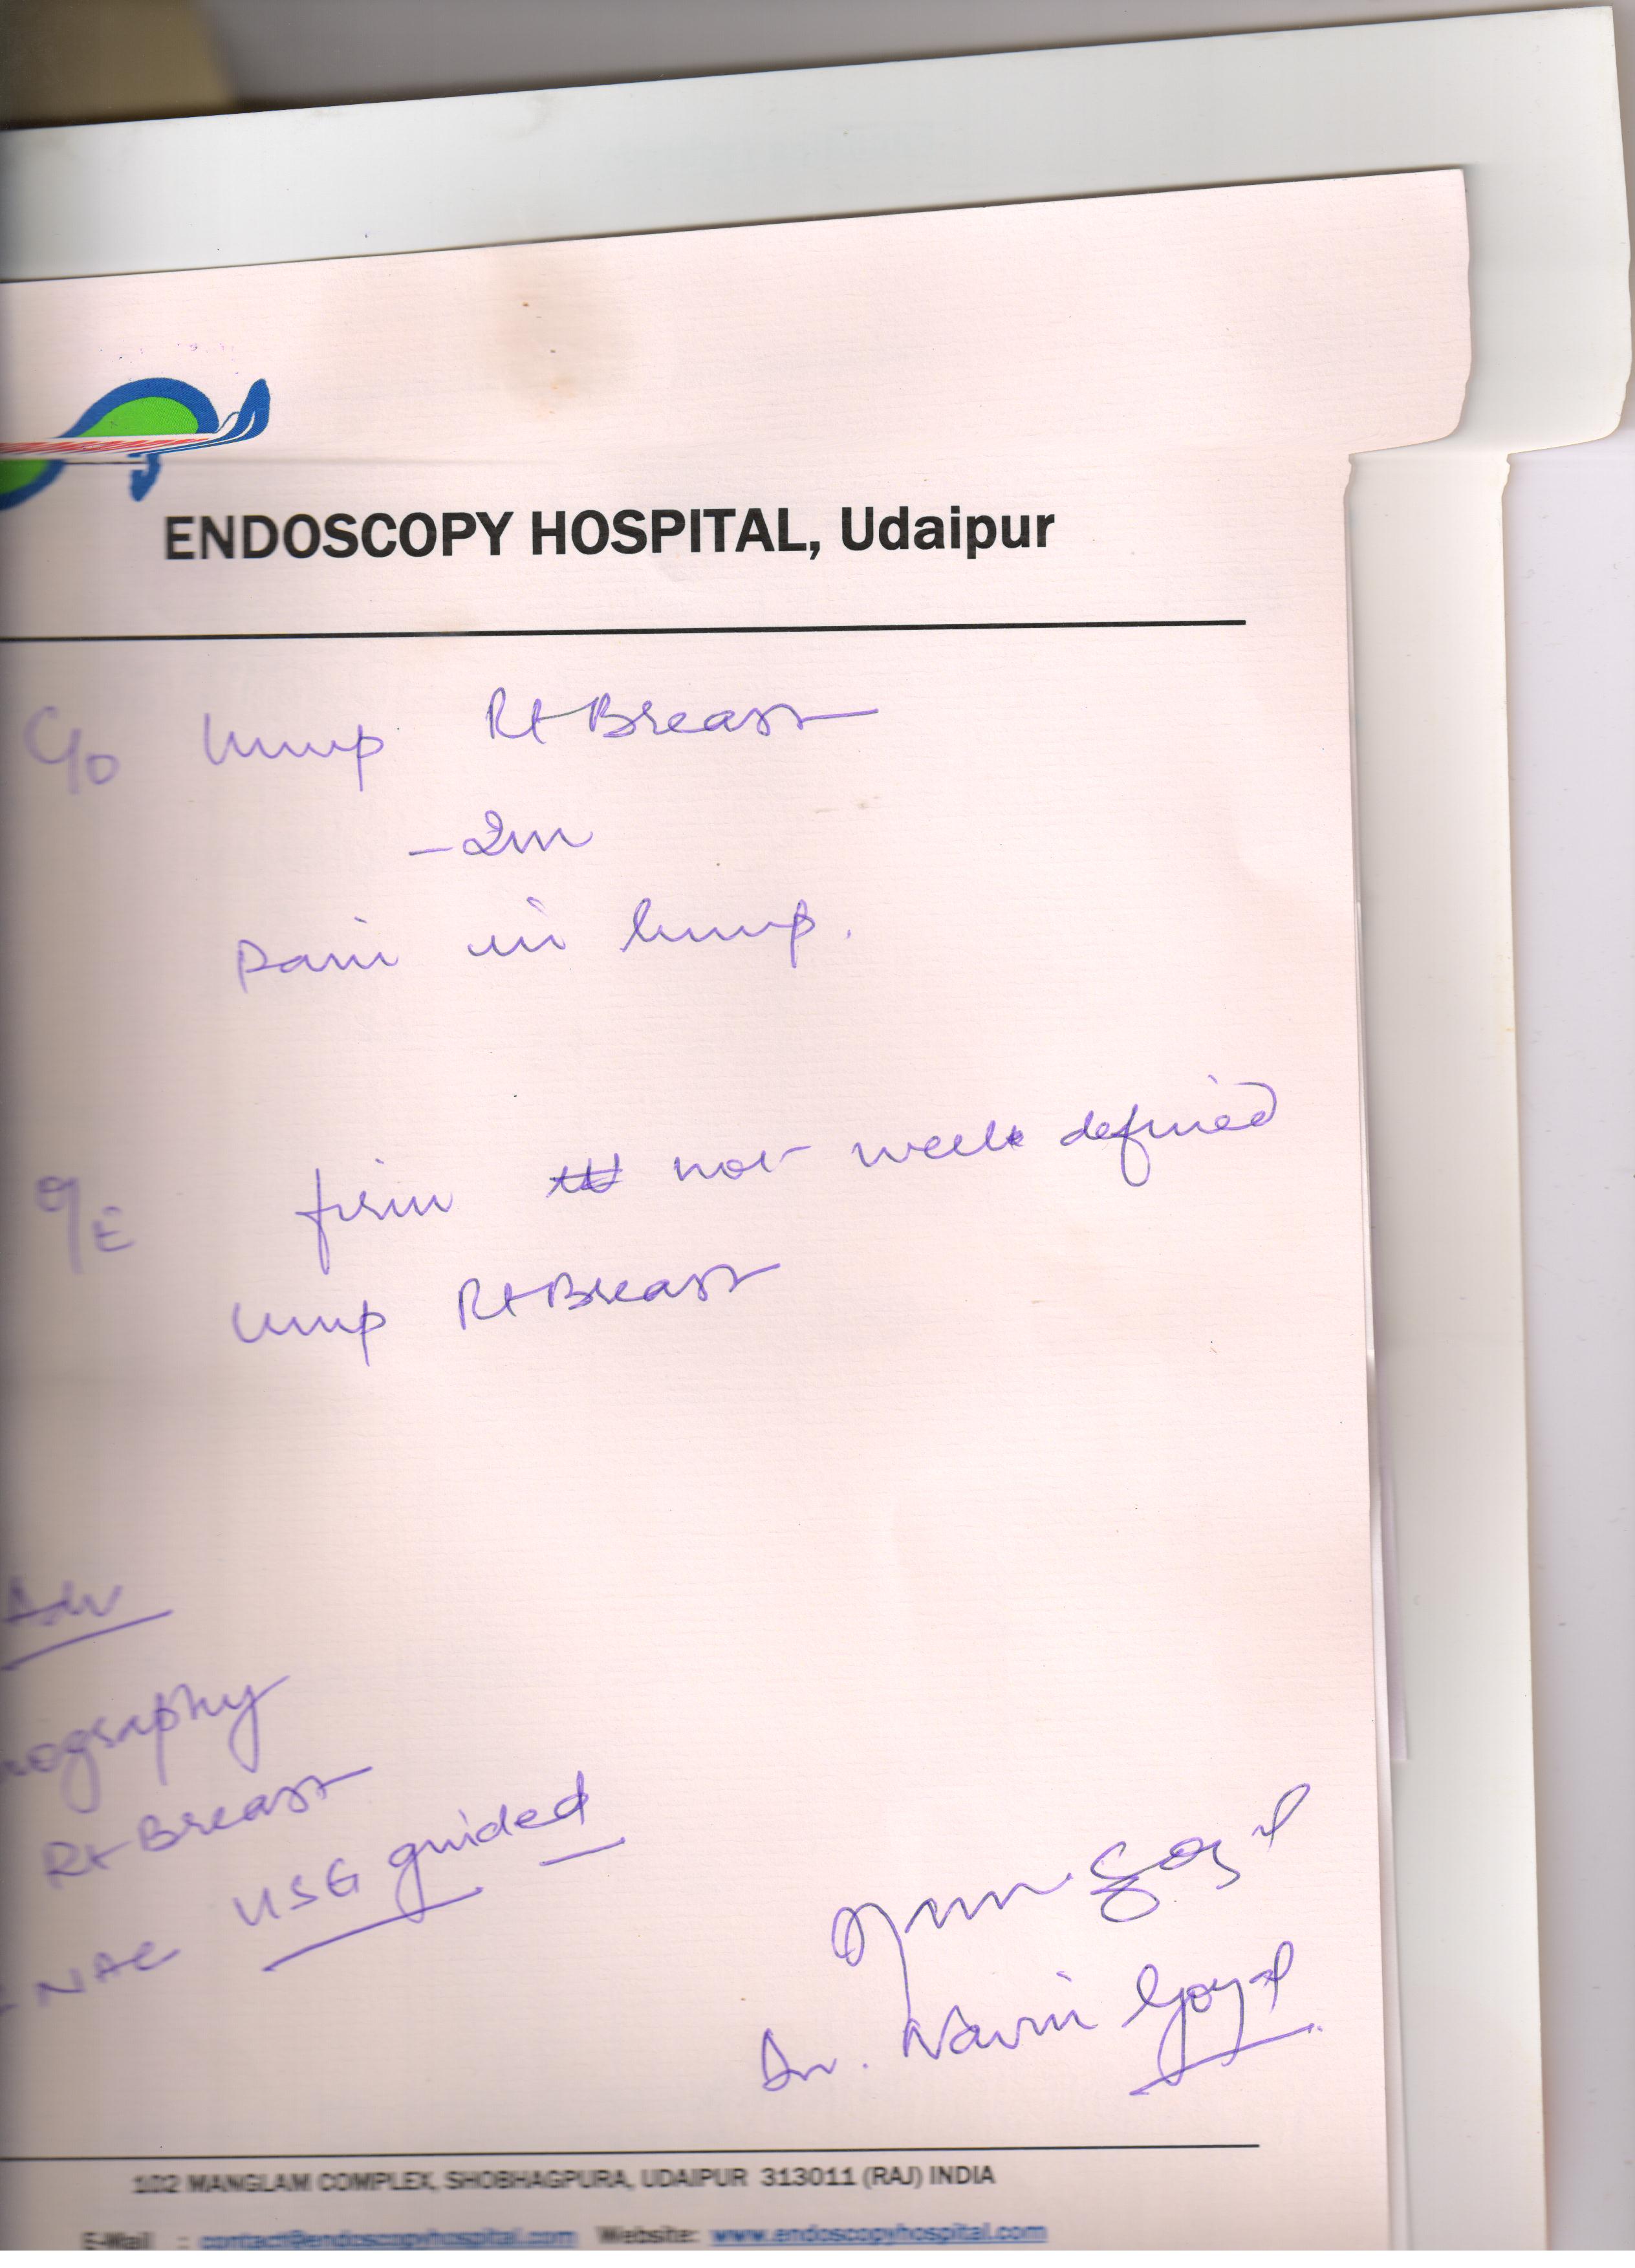 ENDOSCOPY HOSPITAL, Udaipur
C/o lump Rt Breast
- 2m
Pain in lump.
O/E firm not well defined
lump Rt Breast
Adv
ography
Rt Breast
USG guided
NAC
Dr. Navin Goyal
102 MANGLAM COMPLEX, SHOBHAGPURA, UDAIPUR 313011 (RAJ) INDIA
E-Mail : contact@endoscopyhospital.com Website: www.endoscopyhospital.com